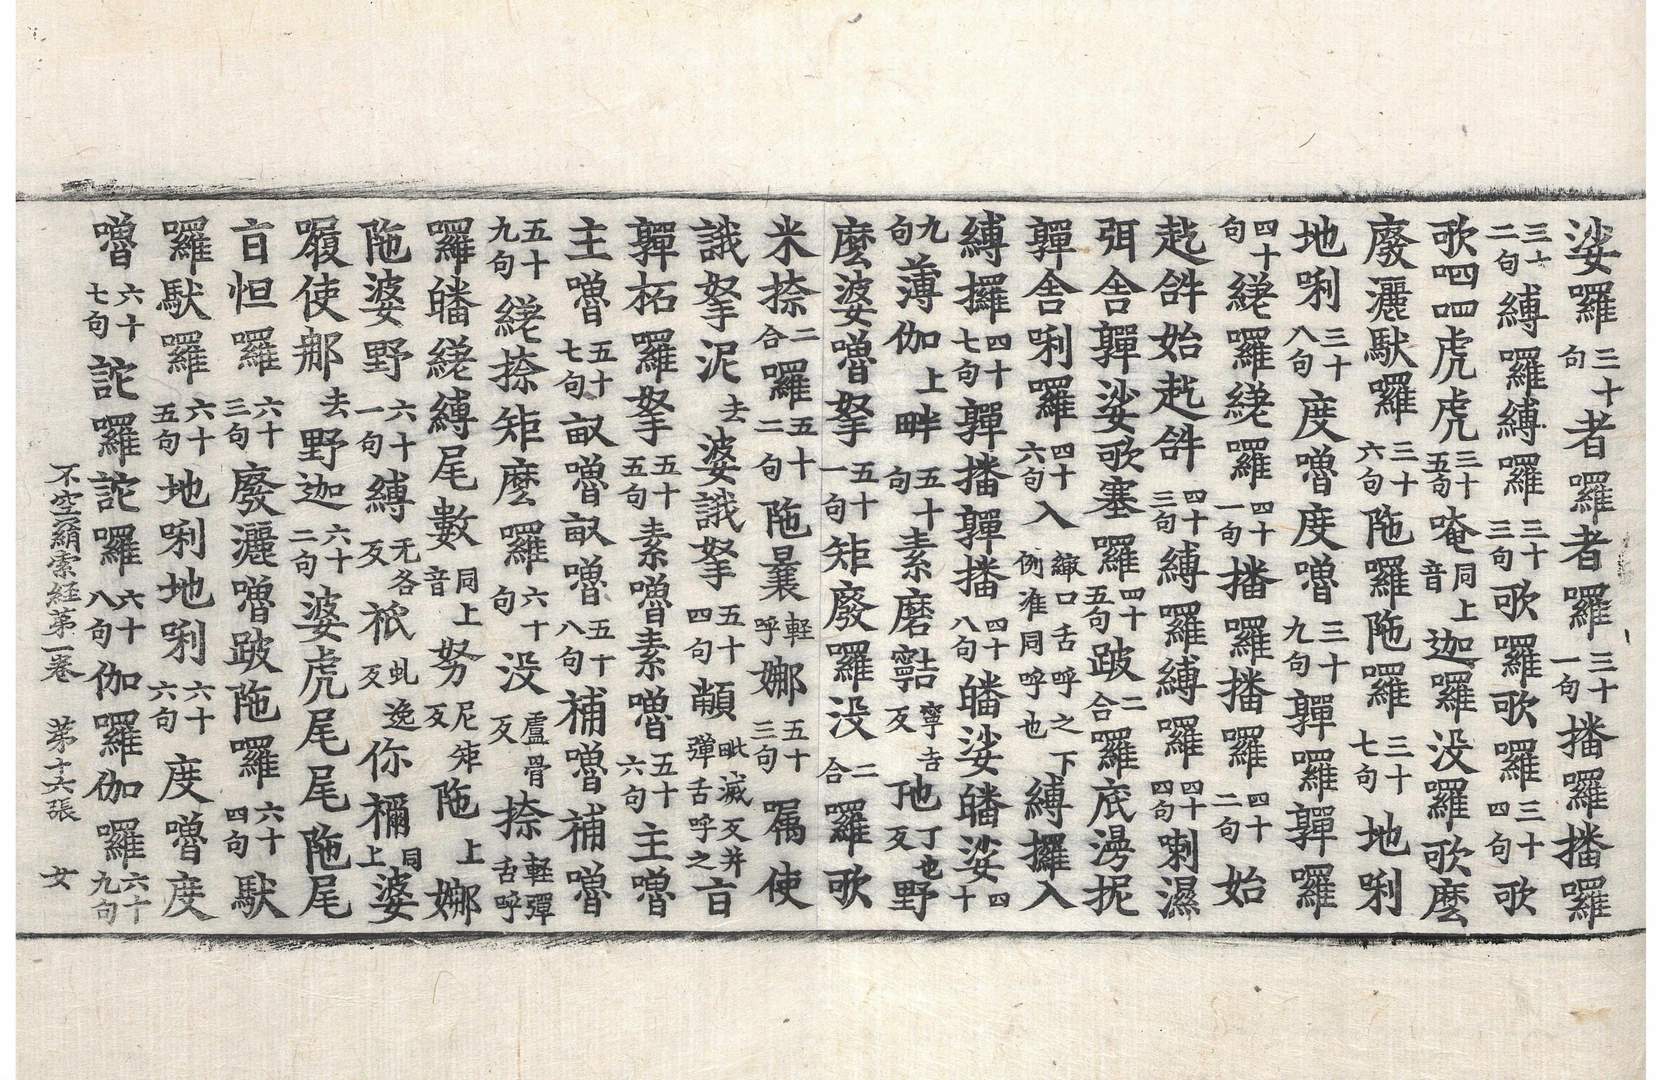 娑囉三十句者囉者囉三十一句播囉播囉
三十二句縛囉縛囉三十三句歌囉歌囉三十四句歌
歌呬呬虎虎三十五句唵同上音迦囉没囉歌麼
廢灑馱囉三十六句陁囉陁囉三十七句地唎
地唎三十八句度嚕度嚕三十九句亸囉亸囉
四十句縒囉縒囉四十一句播囉播囉四十二句始
䞘䛐始䞘䛐四十三句縛囉縛囉四十四句喇濕
弭舍亸娑歌塞囉四十五句跛二合囉底澷抳
亸舍唎囉四十六句入緻口舌呼之下例准同呼也縛攞入
縛攞四十七句亸播亸播四十八句皤娑皤娑四十
九句薄伽上畔五十句素磨㗌寧吉反地丁也反野
麼婆嚕拏五十一句矩廢囉没二合囉歌
米捺二合囉五十二句陁曩輕呼娜五十三句嘱使
誐拏泥去婆誐拏五十四句顲毗滅反并彈舌呼之㫖
亸柘囉拏五十五句素嚕素嚕五十六句主嚕
主嚕五十七句㕞嚕㕞嚕五十八句補嚕補嚕
五十九句縒捺矩麼囉六十句没盧骨反捺輕彈舌呼
囉皤縒縛尾數同上音努尼矩反陁上娜
陁婆野六十一句縛无各反袛虬逸反你禰同上婆
嚘使那去野迦六十二句婆虎尾尾陁尾
㫖怛囉六十三句廢灑嚕跛陁囉六十四句馱
囉馱囉六十五句地唎地唎六十六句度嚕度
嚕六十七句詑囉詑囉六十八句伽囉伽囉六十九句
不空羂索經第一卷　第十六張　女